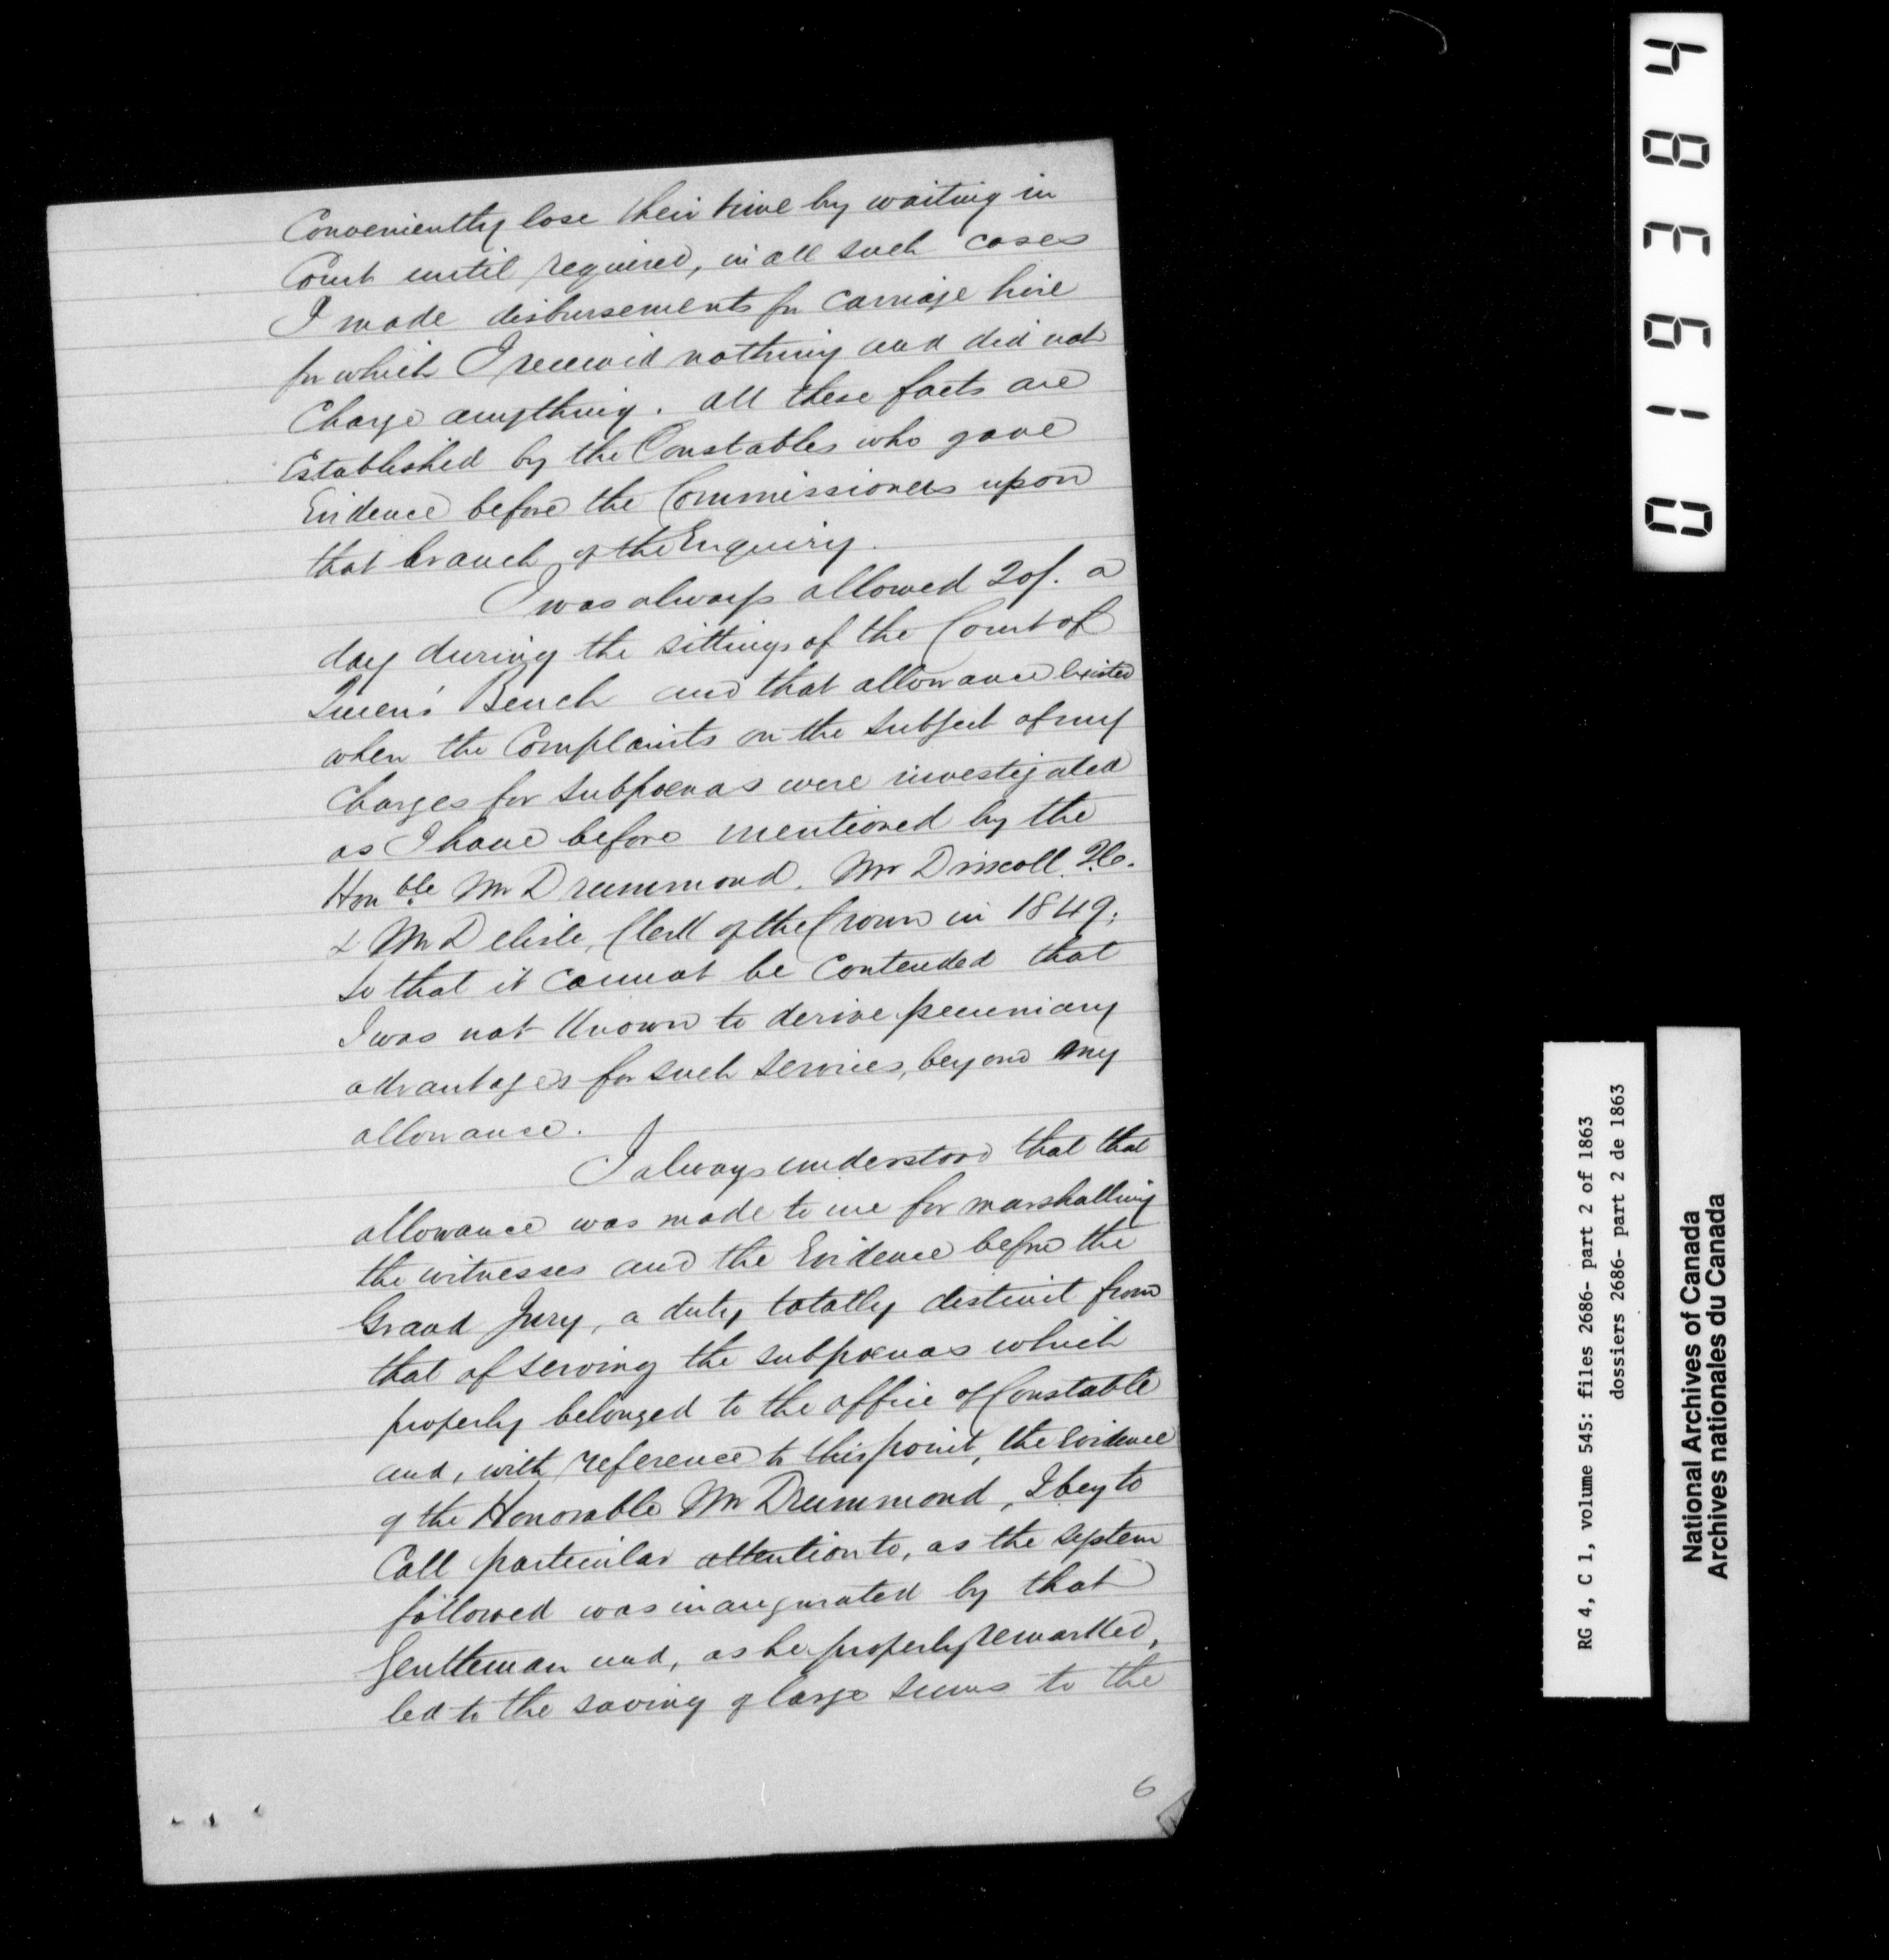 Conveniently lose their time by waiting in
Court until required, in all such cases
I made disbursements for carriage hire
for which I received nothing and did not
Charge anything. all these facts are
Established by the Constables who gave
Evidence before the Commissioners upon
that branch of the Enquiry.
I was always allowed 20/. a
day during the sittings of the Court of
Queen's Bench and that allowance existed
when the Complaints on the subject of my
Charges for Subpoenas were investigated
as I have before mentioned by the
Honble Mr Drummond, Mr Driscoll Q.C.
& Mr Delisle, Clerk of the Crown in 1849;
so that it cannot be contended that
I was not known to derive pecuniary
advantages for such services, beyond my
allowance.
I always understood that that
allowance was made to me for marshalling
the witnesses and the Evidence before the
Grand Jury, a duty totally distinct from
that of serving the subpoenas which
properly belonged to the office of Constable
and, with reference to this point, the Evidence
of the Honorable Mr Drummond, I beg to
Call particular attention to, as the system
followed was inaugurated by that
Gentleman and, as he properly remarked,
led to the saving of large sums to the
6
019384
RG 4, C 1, volume 545: files 2686- part 2 of 1863
dossiers 2686- part 2 de 1863
National Archives of Canada
Archives nationales du Canada